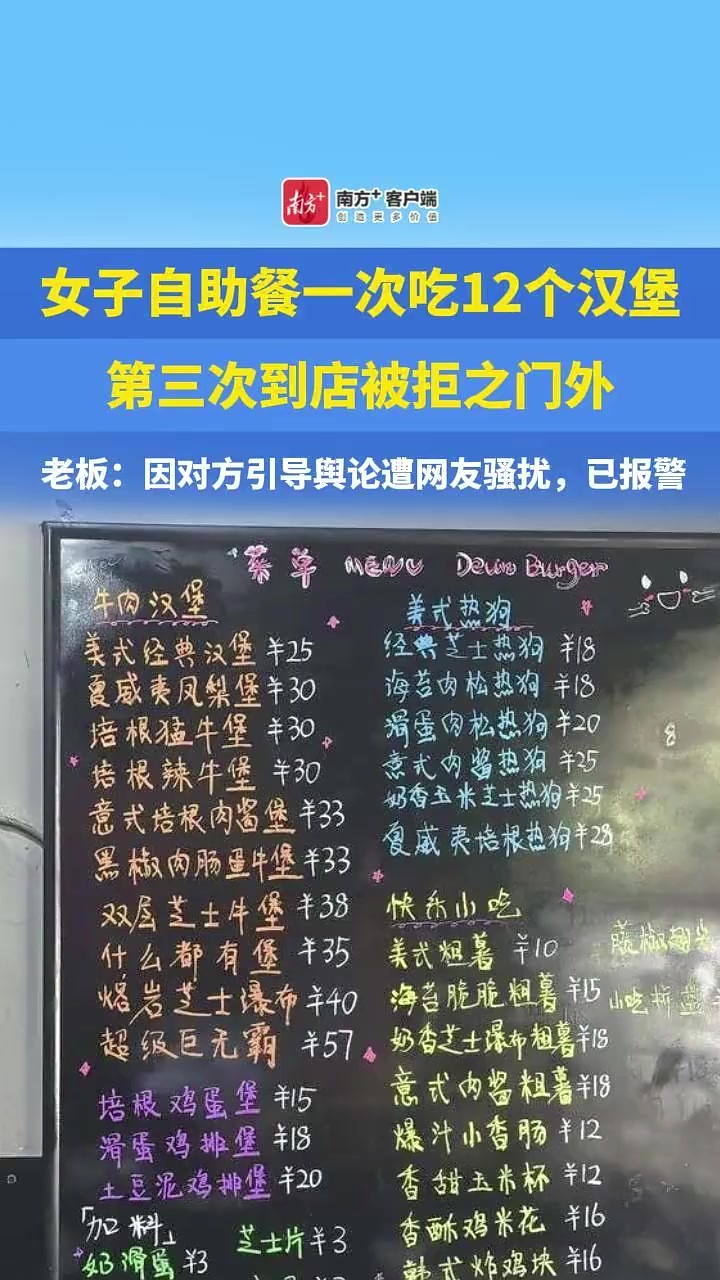 南方+
南方+客户端
创造更多价值
女子自助餐一次吃12个汉堡
第三次到店被拒之门外
老板：因对方引导舆论遭网友骚扰，已报警
菜单 MENU Burger
牛肉汉堡
美式经典汉堡 ¥25
夏威夷凤梨堡 ¥30
培根猛牛堡 ¥30
培根辣牛堡 ¥30
意式培根肉酱堡 ¥33
黑椒肉肠蛋牛堡 ¥33
双层芝士牛堡 ¥38
什么都有堡 ¥35
熔岩芝士瀑布 ¥40
超级巨无霸 ¥57
培根鸡蛋堡 ¥15
滑蛋鸡排堡 ¥18
土豆泥鸡排堡 ¥20
「加料」
奶滑蛋 ¥3
芝士片 ¥3
美式热狗
经典芝士热狗 ¥18
海苔肉松热狗 ¥18
滑蛋肉松热狗 ¥20
意式肉酱热狗 ¥25
奶香玉米芝士热狗 ¥25
夏威夷培根热狗 ¥28
快乐小吃
美式粗薯 ¥10
海苔脆脆粗薯 ¥15
奶香芝士瀑布粗薯 ¥18
意式肉酱粗薯 ¥18
爆汁小香肠 ¥12
香甜玉米杯 ¥12
香酥鸡米花 ¥16
韩式炸鸡块 ¥16
藤椒翅尖
小吃拼盘